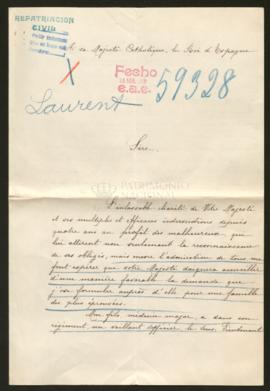 REPATRIACION
CIVIL
A sa Majesté Catholique, le Roi d'Espagne
Fecho
e.a.e.
59328
X
Laurent
Sire,
PATRIMONIO
L'inlassable charité de Votre Majesté
et ses multiples et interventions depuis
quatre ans au profit des malheureux, qui
lui attirent non seulement la reconnaissance
de ses obligés, mais encore l'admiration de tous, me
font espérer que votre Majesté daignera accueillir
d'une manière favorable la demande que
j'ose formuler auprès d'elle pour une famille
des plus éprouvées.
Mon fils, médecin-major, a dans son
régiment un vaillant officier, le Sous-Lieutenant